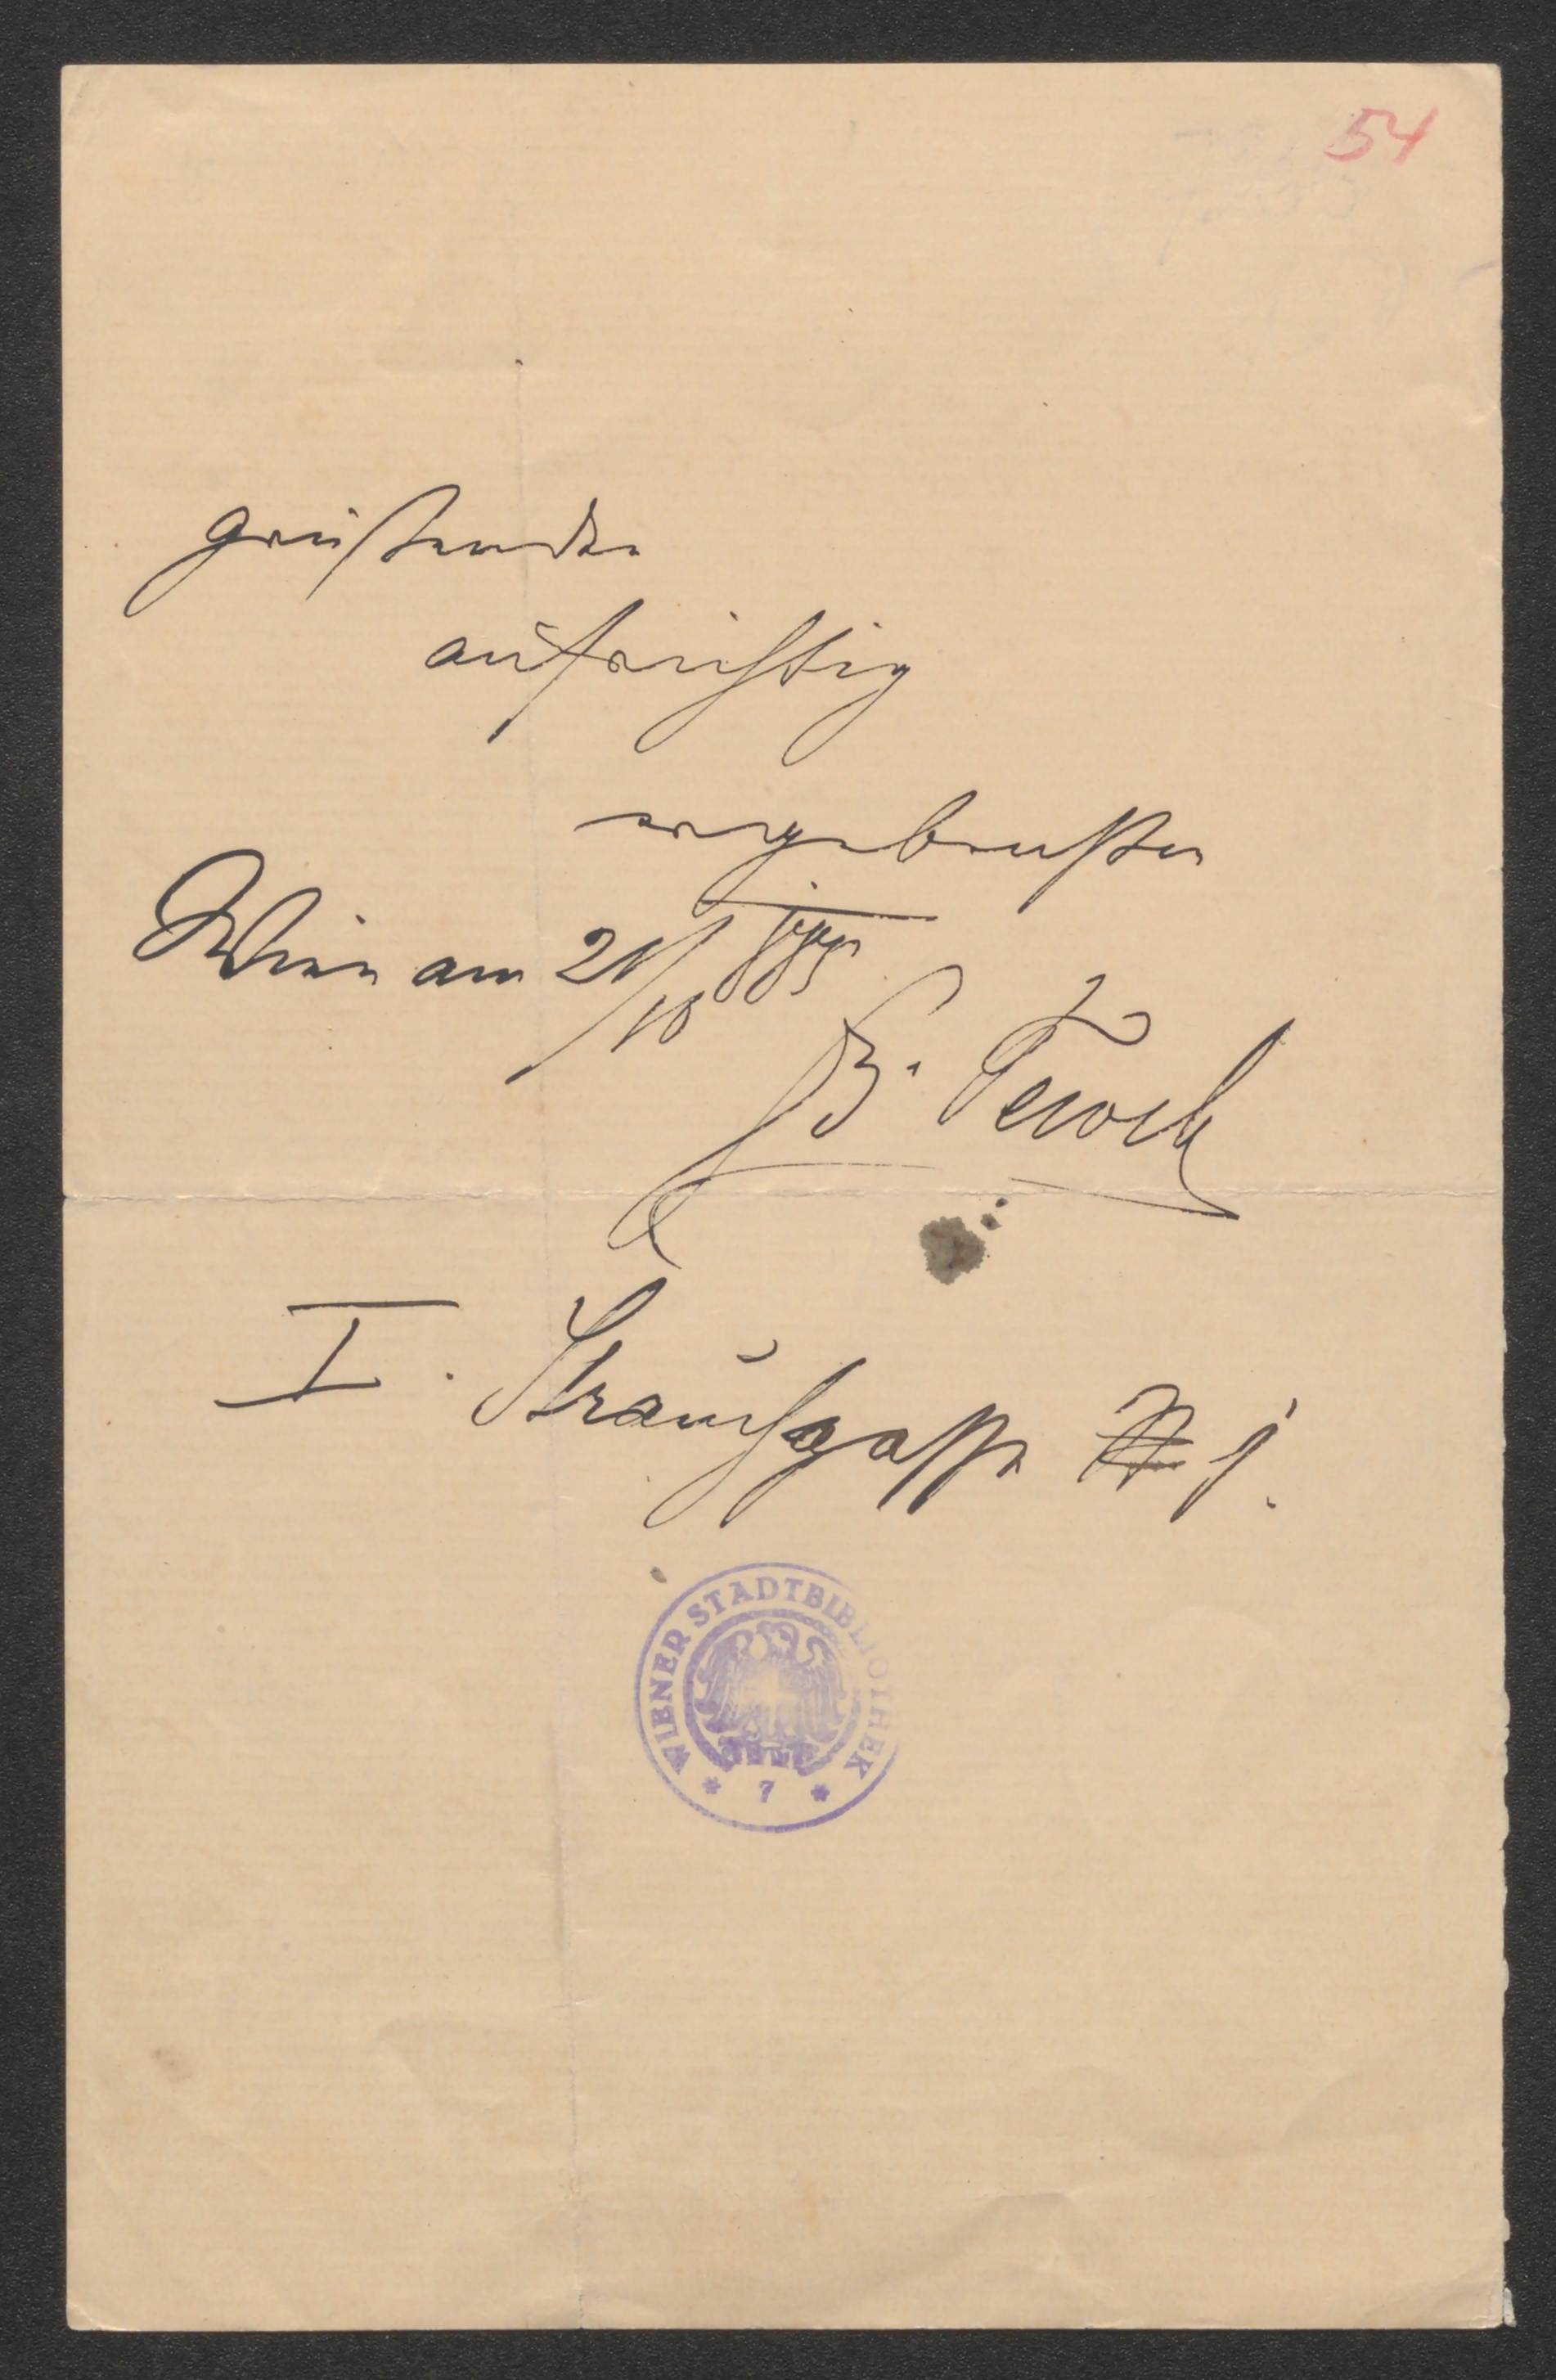 54
grüßender
aufrichtig
ergebenster
Wien am 21/10 885
B. Terock
I. Strauchgasse № 1.
WIENER STADTBIBLIOTHEK
* 7 *